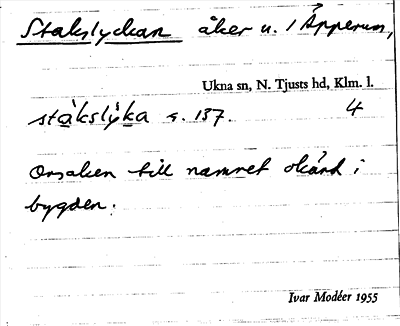 Stakslyckan åker u. 1 Äpperum,
Ukna sn, N. Tjusts hd, Klm. l.
stàkslỳka s. 137. 4
Orsaken till namnet okänd i
bygden.
Ivar Modéer 1955